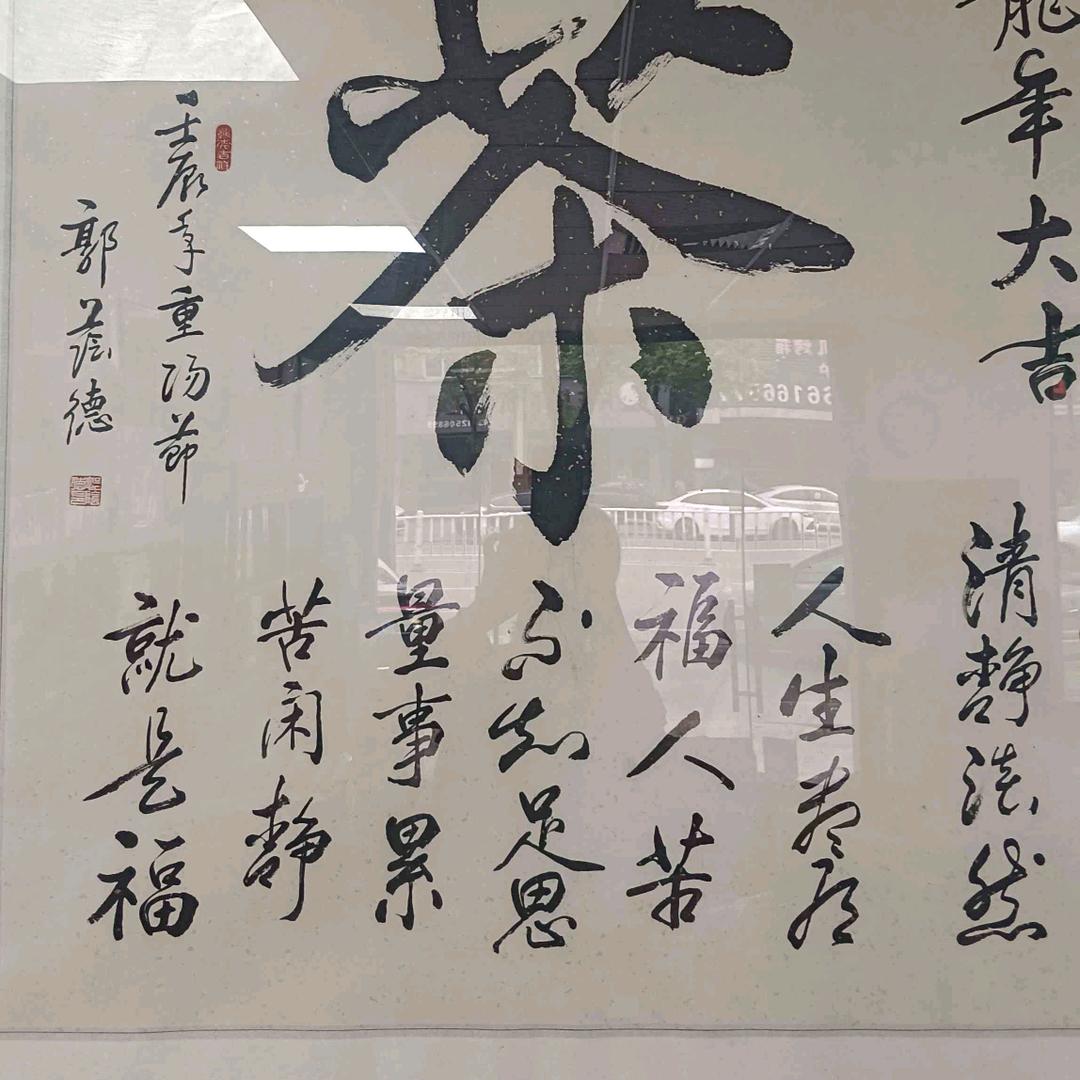 龍年大吉
茶
清静然
人生
福人苦
不知足思
量事累
苦闲静
就是福
壬辰年重陽節
郭蔭德